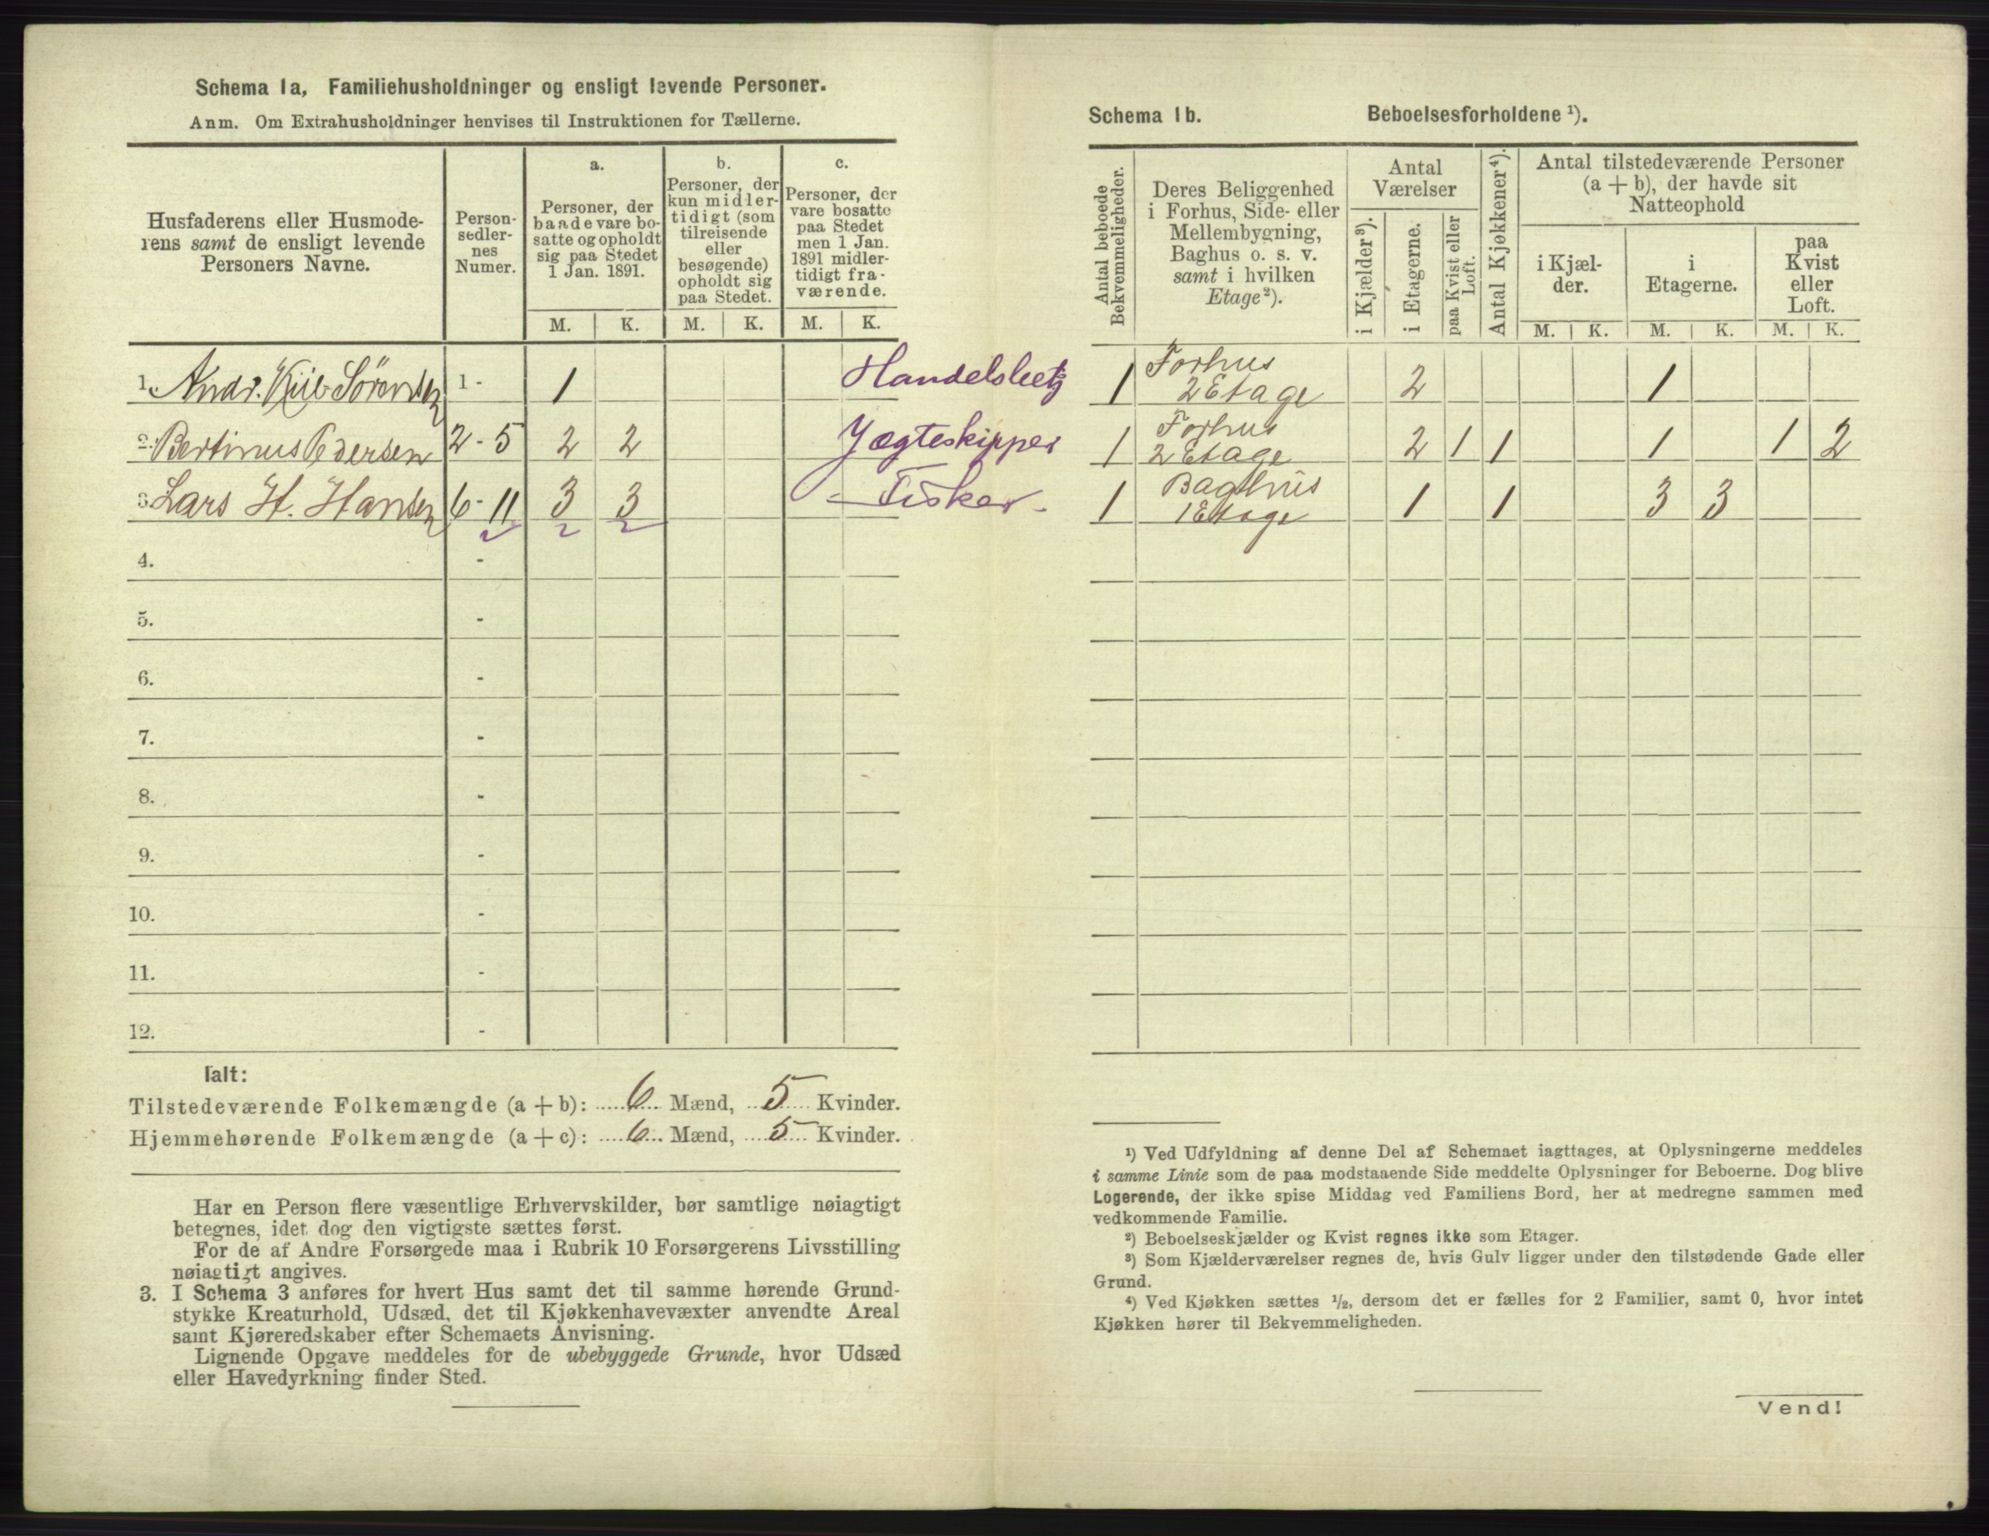 Schema 1a, Familiehusholdninger og ensligt levende Personer.
Anm. Om Extrahusholdninger henvises til Instruktionen for Tællerne.
Husfaderens eller Husmoderens samt de ensligt levende Personers Navne.
Personsedlernes Numer.
a.
Personer, der baade vare bosatte og opholdt sig paa Stedet 1 Jan. 1891.
b.
Personer, der kun midlertidigt (som tilreisende eller besøgende) opholdt sig paa Stedet.
c.
Personer, der vare bosatte paa Stedet men 1 Jan. 1891 midlertidigt fraværende.
M. K. M. K. M. K.
1. Andr. Kiil Sørensen 1 - 1 Handelsbetj
2. Bertinus Pedersen 2 - 5 2 2 Jægteskipper
3. Lars H. Hansen 6 - 11 3 3 - Fisker -
4. -
5. -
6. -
7. -
8. -
9. -
10. -
11. -
12. -
Ialt:
Tilstedeværende Folkemængde (a + b): 6 Mænd, 5 Kvinder.
Hjemmehørende Folkemængde (a + c): 6 Mænd, 5 Kvinder.
Har en Person flere væsentlige Erhvervskilder, bør samtlige nøiagtigt
betegnes, idet dog den vigtigste sættes først.
For de af Andre Forsørgede maa i Rubrik 10 Forsørgerens Livsstilling
nøiagtigt angives.
3. I Schema 3 anføres for hvert Hus samt det til samme hørende Grund-
stykke Kreaturhold, Udsæd, det til Kjøkkenhavevæxter anvendte Areal
samt Kjøreredskaber efter Schemaets Anvisning.
Lignende Opgave meddeles for de ubebyggede Grunde, hvor Udsæd
eller Havedyrkning finder Sted.
Schema 1b. Beboelsesforholdene ¹).
Antal beboede Bekvemmeligheder.
Deres Beliggenhed i Forhus, Side- eller Mellembygning, Baghus o. s. v. samt i hvilken Etage ²).
Antal Værelser
i Kjælder ³).
i Etagerne.
paa Kvist eller Loft.
Antal Kjøkkener ⁴).
Antal tilstedeværende Personer (a + b), der havde sit Natteophold
i Kjælder.
i Etagerne.
paa Kvist eller Loft.
M. K. M. K. M. K.
1 Forhus 2 Etage 2 1
1 Forhus 2 Etage 2 1 1 1 1 2
1 Baghus 1 Etage 1 1 3 3
¹) Ved Udfyldning af denne Del af Schemaet iagttages, at Oplysningerne meddeles
i samme Linie som de paa modstaaende Side meddelte Oplysninger for Beboerne. Dog blive
Logerende, der ikke spise Middag ved Familiens Bord, her at medregne sammen med
vedkommende Familie.
²) Beboelseskjælder og Kvist regnes ikke som Etager.
³) Som Kjælderværelser regnes de, hvis Gulv ligger under den tilstødende Gade eller
Grund.
⁴) Ved Kjøkken sættes ½, dersom det er fælles for 2 Familier, samt 0, hvor intet
Kjøkken hører til Bekvemmeligheden.
Vend!